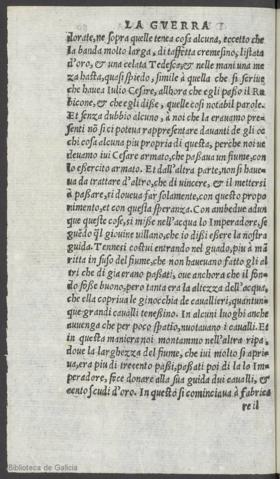 LA GVERRA
dorate, ne sopra quelle tenea cosa alcuna, eccetto che
la banda molto larga, di taffetta cremesino, listata
d'oro, & una celata Tedesca, & nelle mani una me
za hasta, quasi spiedo, simile à quella che si scriue
che hauea Iulio Cesare, allhora che egli passò il Ru
bicone, & che egli disse, quelle cosi notabil parole.
Et senza dubbio alcuno, à noi che la erauamo pre-
senti nō si ci poteua rappresentare dauanti de gli oc
chi cosa alcuna piu propria di questa, perche noi ue
deuamo iui Cesare armato, che passaua un fiume, con
lo essercito armato. Et dall'altra parte, non si haue
ua da trattare d'altro, che di uincere, & il mettersi
à passare, si doueua far solamente, con questo propo
nimento, et con questa speranza. Con ambedue adun
que queste cose, si misse nell'acqua lo Imperadore, se
guēdo ql giouine uillano, che io dissi essere la nostra
guida. Tennesi costui entrando nel guado, piu à ma
ritta in suso del fiume, che non haueuano fatto gli al
tri che di gia erano passati, oue anchora che il fon-
do fosse buono, pero tanta era la altezza dell'acqua,
che ella copriua le ginocchia de cauallieri, quantun
que grandi caualli tenessino. In alcuni luoghi anche
auuenga che per poco spatio, nuotauano i caualli. Et
in questa maniera noi montammo nell'altra ripa,
doue la larghezza del fiume, che iui molto si apri-
ua, era piu di trecento passi, passati poi di la lo Im-
peradore, fece donare alla sua guida dui caualli, &
cento scudi d'oro. In questo si cominciaua à fabrica
re il
Biblioteca de Galicia